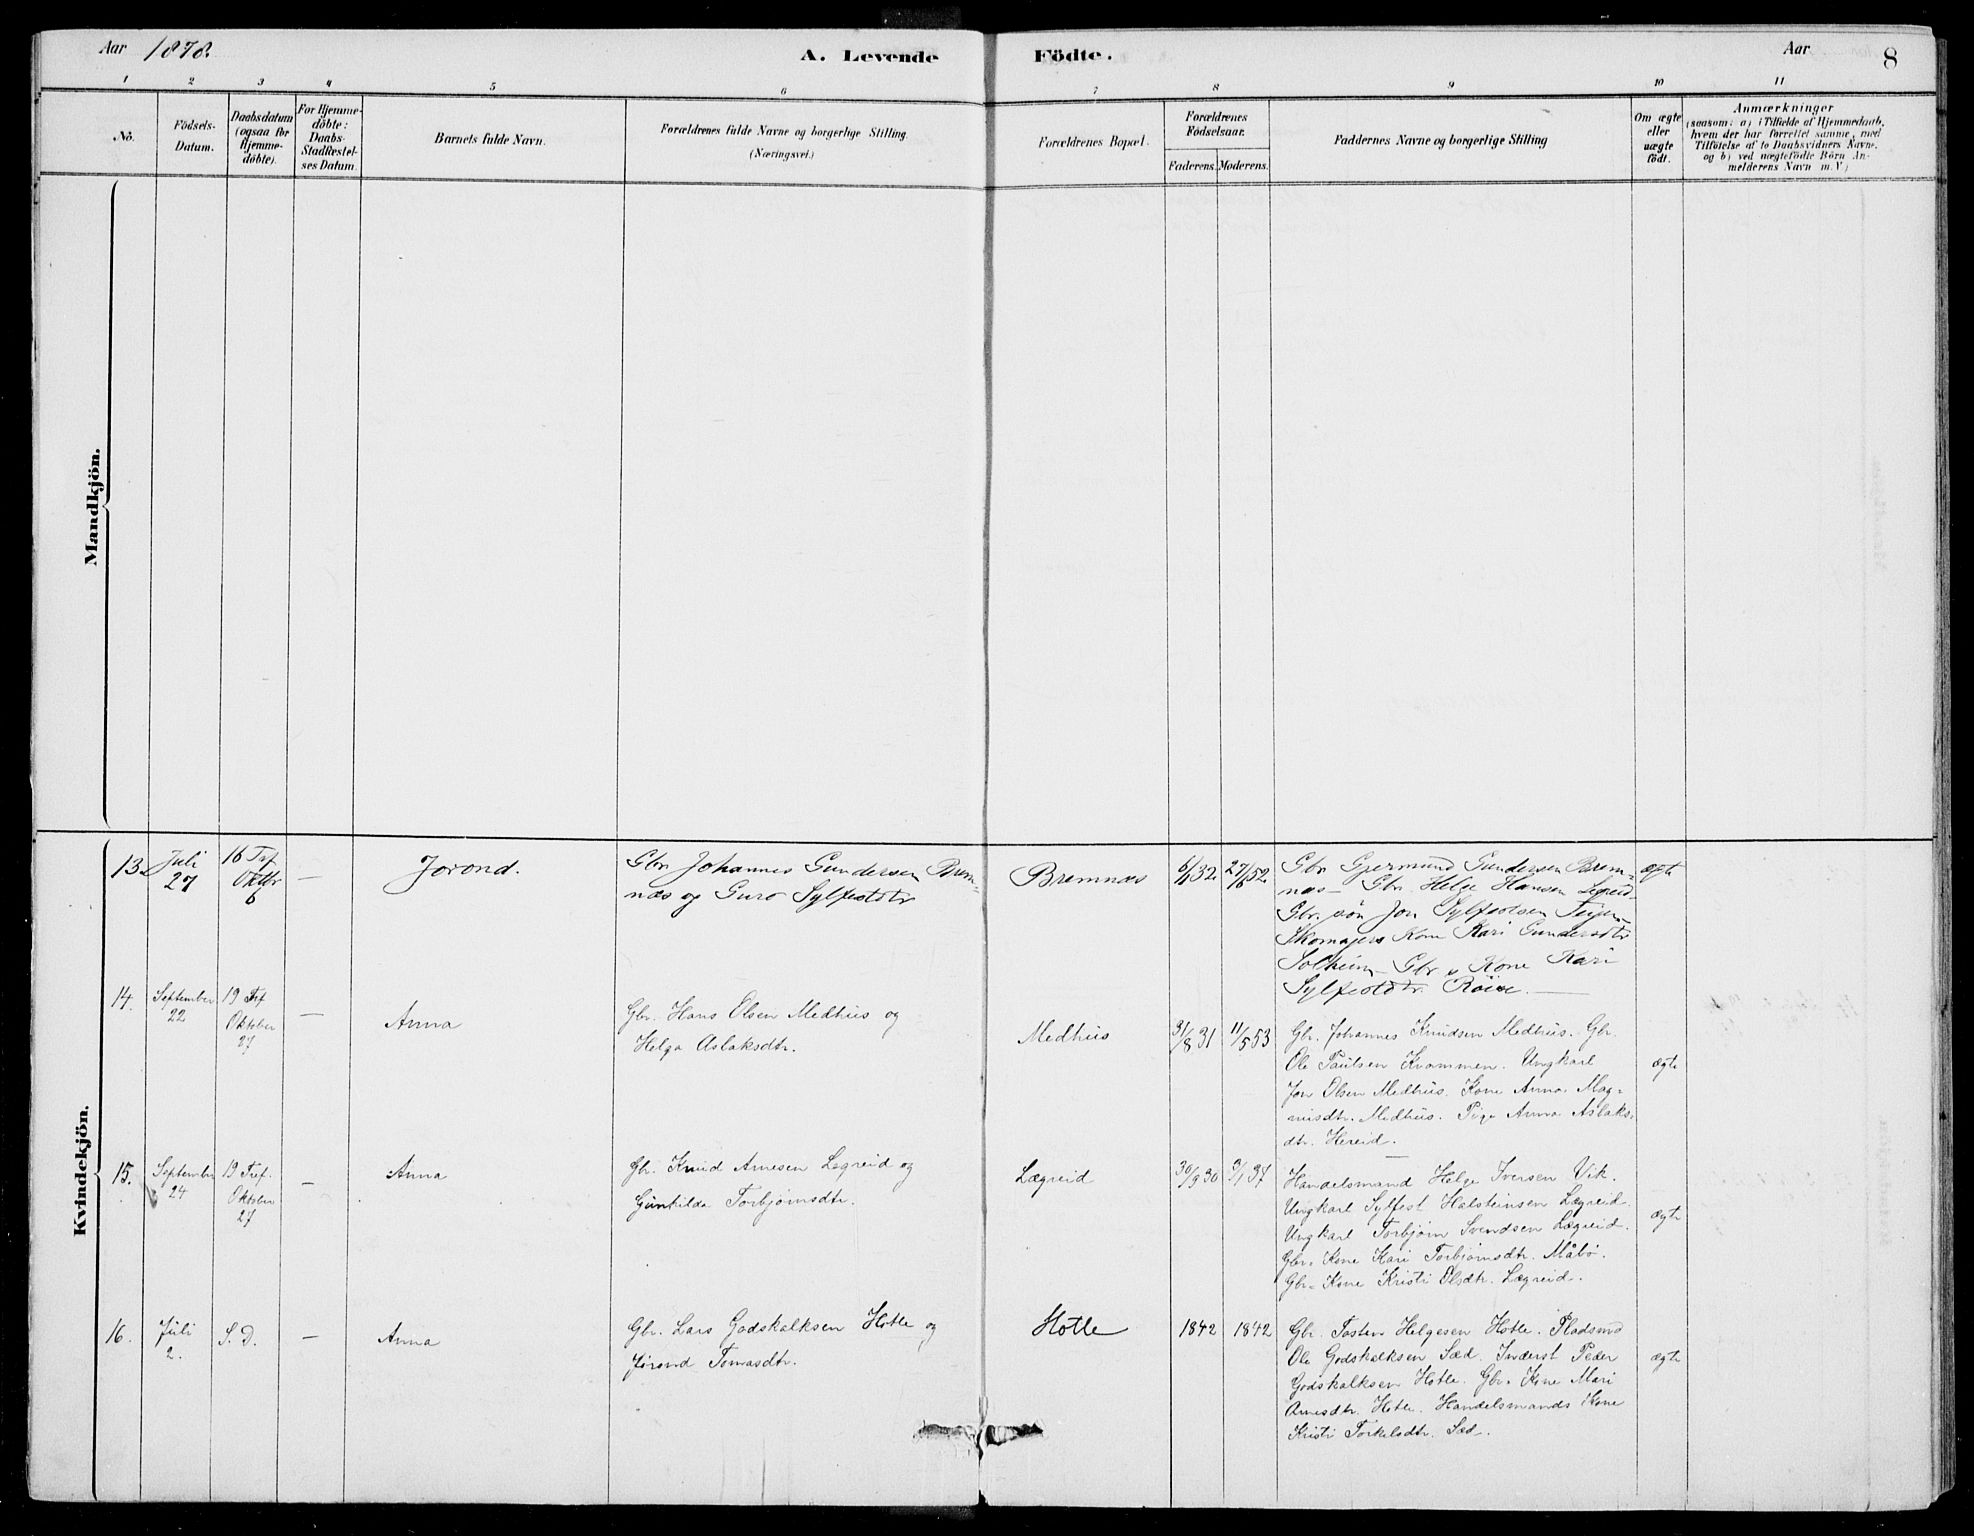 Aar 1878. A. Levende Födte. Aar 8
1 2 3 4 5 6 7 8 9 10 11
No.
Födsels-
Datum.
Daabsdatum
(ogsaa för
Hjemme-
döbte).
For Hjemme-
döbte:
Daabs-
Stadfæstel-
ses Datum
Barnets fulde Navn.
Forældrenes fulde Navne og borgerlige Stilling.
(Næringsvei.)
Forældrenes Bopæl.
Forældrenes
Födselsaar.
Faderens. Moderens.
Faddernes Navne og borgerlige Stilling
Om ægte
eller
uægte
födt.
Anmærkninger
(saasom: a) i Tilfælde af Hjemmedaab,
hvem der har forrettet samme, med
Tilföielse af to Daabsvidners Navne,
og b) ved uægtefödte Börn An-
melderens Navn m. V.)
Mandkjön.
Kvindekjön.
13.
Juli
27
16 Tref
Oktbr
6
—
Jorond.
Gbr Johannes Gundersen Brem-
næs og Guro Sylfestdtr
Bremnæs
6/6 32.
27/6 52.
Gbr Gjermund Gundersen Brem-
næs — Gbr. Helge Hansen Legreid-
Gbr. sön Jon Sylfestsen
Skomagers Kone Kari Gundersdtr
Solheim — Gbr s Kone Kari
Sylfestdtr. Röise. —
ægte
14.
September
22
19 Tref
Oktober
27
—
Anna
Gbr. Hans Olsen Medhus og
Helga Aslaksdtr.
Medhus
31/8 31
11/5 53
Gbr. Johannes Knudsen Medhus. Gbr.
Ole Paulsen Kvammen. Ungkarl
Jon Olsen Medhus. Kone Anna Mag-
nusdtr. Medhus. Pige Anna Aslaks-
dtr. Hereid.
ægte
15.
September
24
19 Tref.
Oktober
27
—
Anna
Gbr. Knud Arnesen Legreid og
Gunhilda Torbjörnsdtr.
Lægreid
30/9 30
9/1 37
Handelsmand Helge Iversen Vik.
Ungkarl Sylfest Halsteinsen Lægreid.
Ungkarl Torbjörn Svendsen Lægreid.
Gbr. Kone Kari Torbjörnsdtr. Måbö.
Gbr. Kone Kristi Olsdtr. Lægreid.
ægte
16.
Juli
2.
S. D.
—
Anna
Gbr. Lars Godskalksen Hotle og
Jörond Tomasdtr.
Hotle
1842
1842
Gbr. Tosten Helgesen Hotle. Pladsmd
Ole Godskalksen Sæd. Inderst Peder
Godskalksen Hotle. Gbr. Kone Mari
Arnesdtr. Hotle. Handelsmands Kone
Kristi Torkelsdtr. Sæd.
ægte